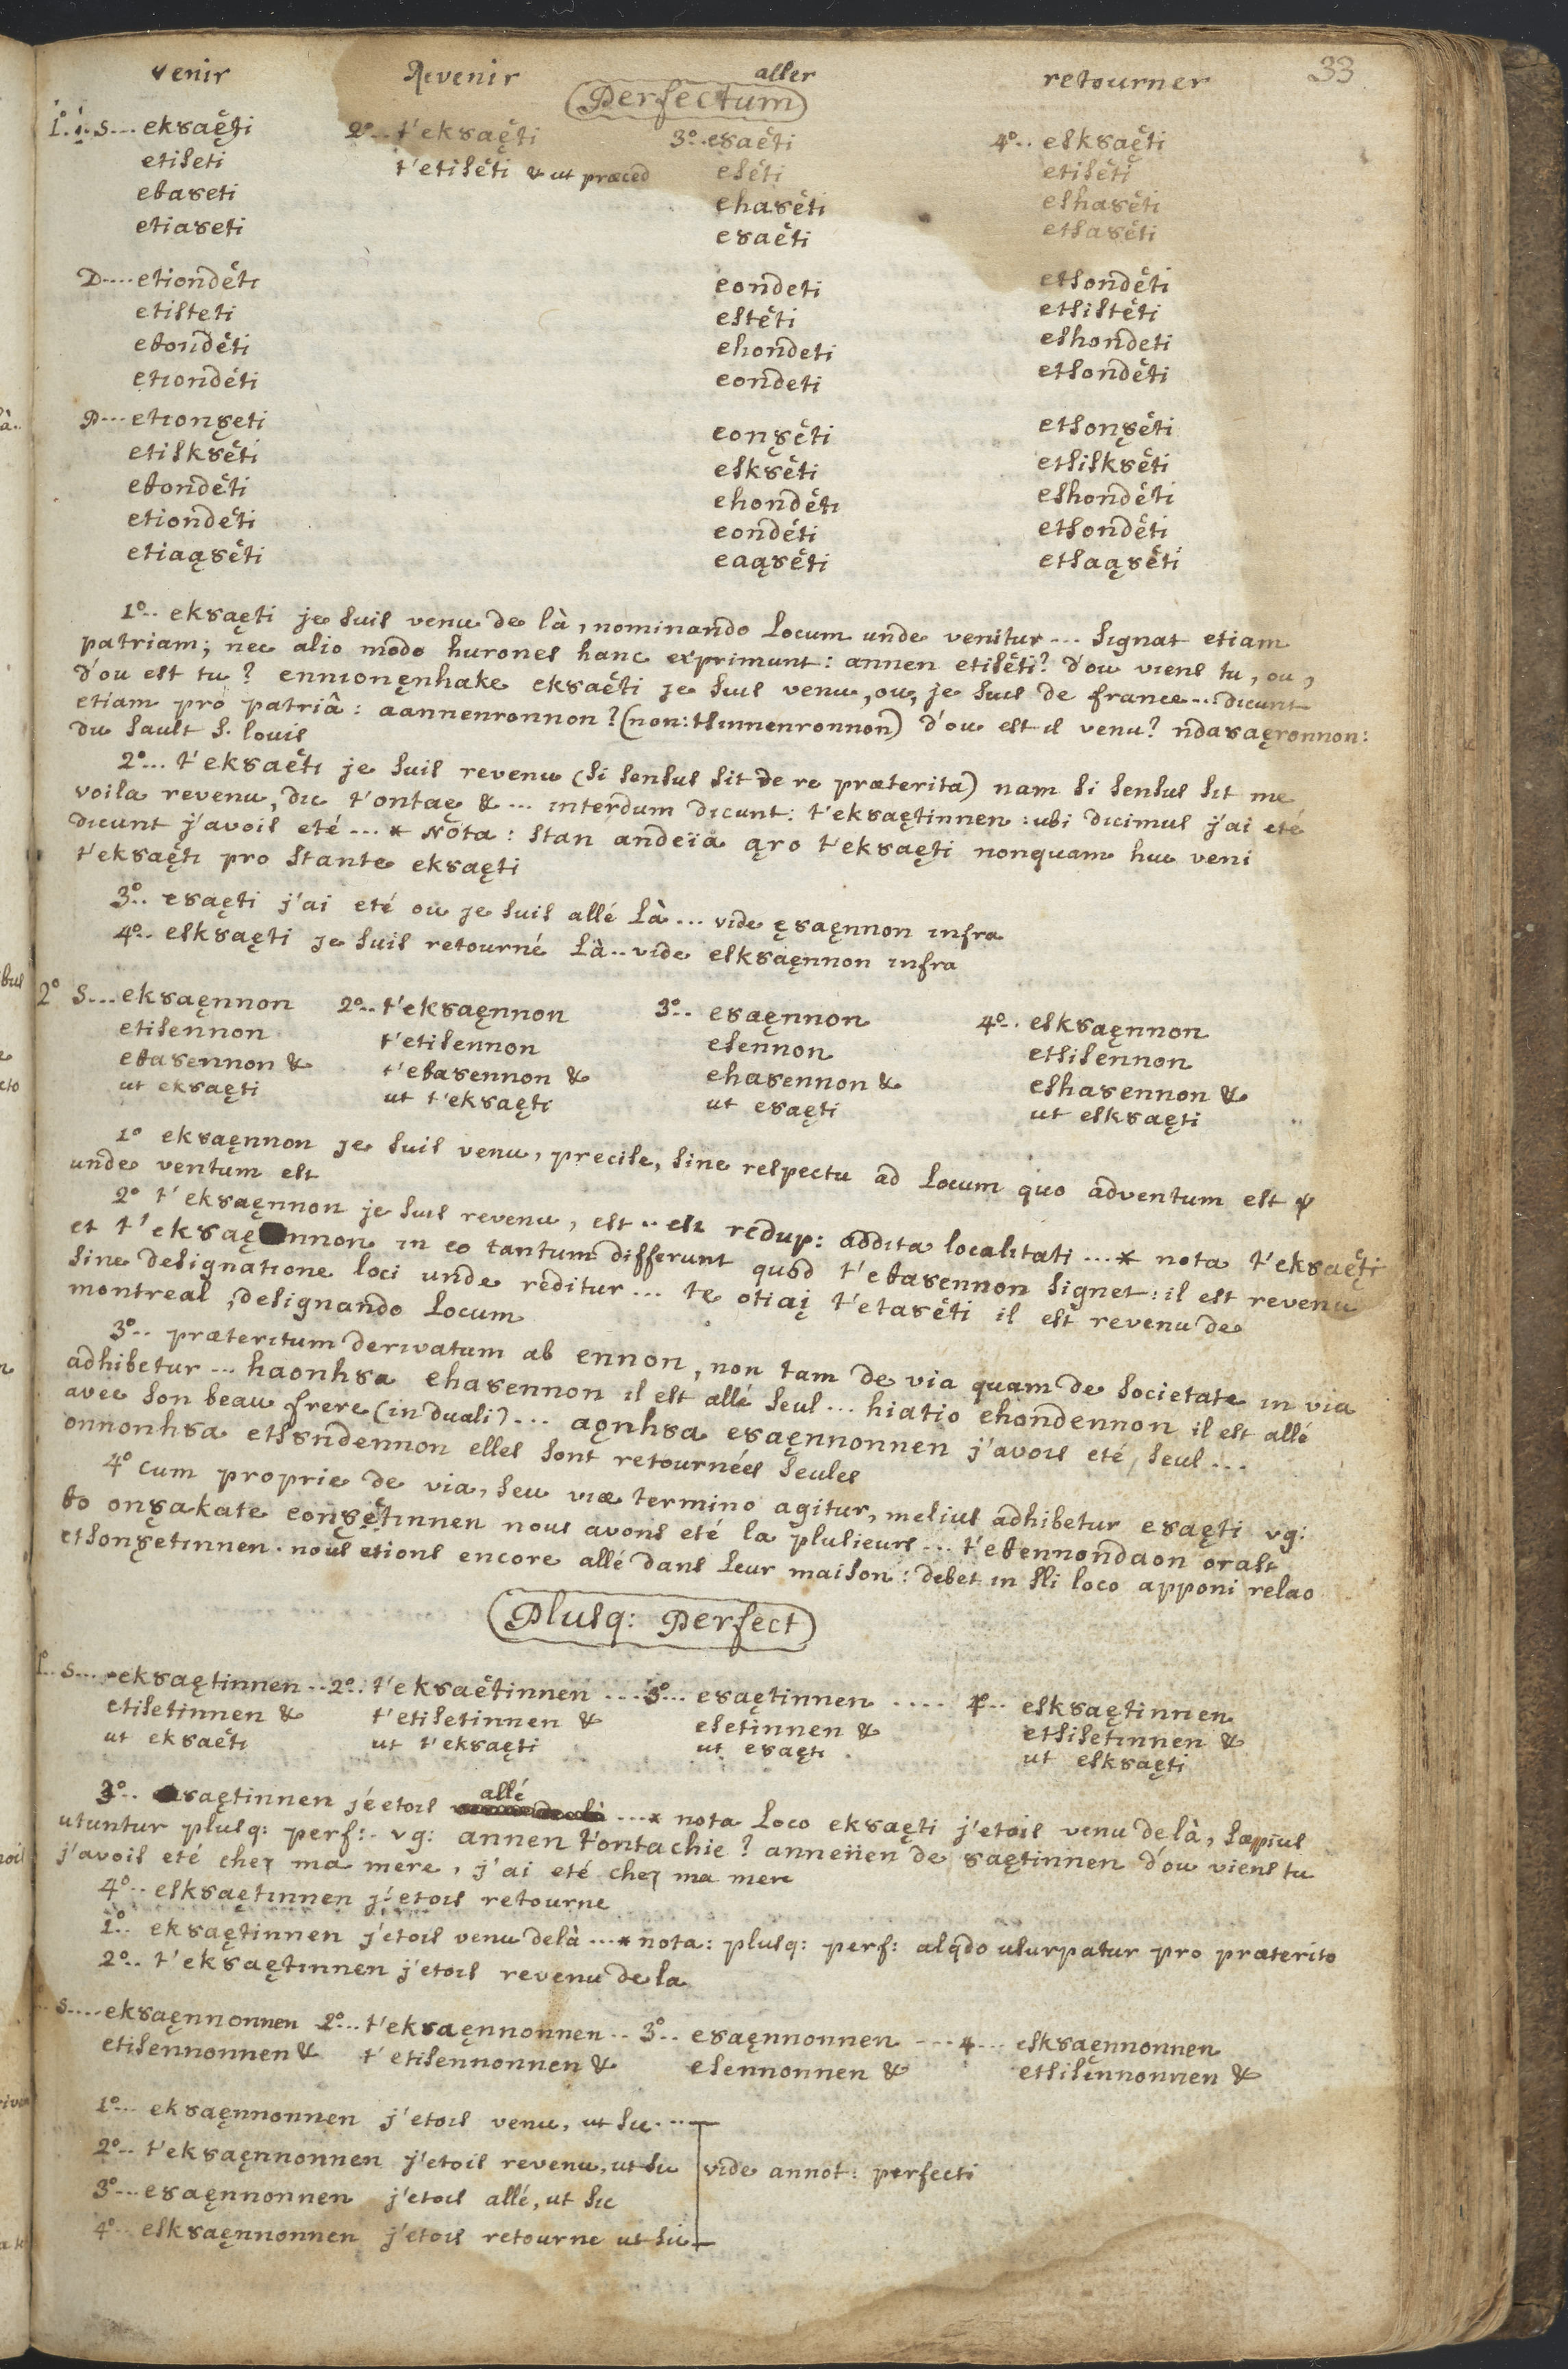 33
venir Revenir aller retourner
Perfectum
1º. i. s... ekȣaęti 2º.. t'ekȣaęti 3º.. eȣaęti 4º.. eskȣaęti
etiseti t'etisęti & ut præced esęti etisęti
eθaȣeti ehaȣęti eshaȣęti
etiaȣeti eȣaęti etsaȣęti
D.... etiondęti eondeti etsondęti
etisteti estęti etsistęti
eθondęti ehondeti eshondeti
etiondęti eondeti etsondęti
P... etionȣeti eonȣęti etsonȣęti
etiskȣęti eskȣęti etsiskȣęti
eθondęti ehondęti eshondęti
etiondęti eondęti etsondęti
etiaąȣęti eaąȣęti etsaąȣęti
1º.. ekȣaęti je suis venu de là, nominando Locum unde venitur ... signat etiam
patriam; nec alio modo hurones hanc exprimunt: annen etisęti? d'ou viens tu, ou,
d'ou est tu? ennionęnhake ekȣaęti je suis venu, ou, je suis de france... dicunt
etiam pro patriâ: aannenronnon? (non: tsinnenronnon) d'ou est il venu? ndaȣaęronnon:
du sault s. louis
2º... t'ekȣaęti je suis revenu (si sensus sit de re præterita) nam si sensus sit me
voila revenu, dic t'ontaę &... interdum dicunt: t'ekȣaętinnen: ubi dicimus j'ai eté
dicunt j'avois eté ... * Nota: stan andeïa ąro t'ekȣaęti nonquam huc veni
t'ekȣaęti pro stante ekȣaęti
3º.. eȣaęti j'ai eté ou je suis allé Là ... vide ęȣaęnnon infra
4º.. eskȣaęti je suis retourné Là.. vide eskȣaęnnon infra
2º s... ekȣaęnnon 2º.. t'ekȣaęnnon 3º.. eȣaęnnon 4º.. eskȣaęnnon
etisennon t'etisennon esennon etsisennon
eθaȣennon & t'eθaȣennon & ehaȣennon & eshaȣennon &
ut ekȣaęti ut t'ekȣaęti ut eȣaęti ut eskȣaęti
1º ekȣaęnnon je suis venu, precise, sine respectu ad Locum quo adventum est &
unde ventum est
2º t'ekȣaęnnon je suis revenu, est .. est redup: addita localitati ... * nota t'ekȣaęti
et t'ekȣaęnnon in eo tantum differunt quod t'eθaȣennon signet: il est revenu
sine designatione loci unde reditur ... te otiaį t'etaȣęti il est revenu de
montreal, designando Locum
3º.. præteritum derivatum ab ennon, non tam de via quam de societate in via
adhibetur ... haonhȣa ehaȣennon il est allé seul ... hiatio ehondennon il est allé
avec son beau frere (in duali) ... aǫnhȣa eȣaęnnonnen j'avois eté, seul ...
onnonhȣa etsȣndennon elles sont retournées seules
4º cum proprie de via, seu viæ termino agitur, melius adhibetur eȣaęti vg:
θo onȣakate eonȣętinnen nous avons eté la plusieurs ... t'eθennondaon orast
etsonȣetinnen. nous etions encore allé dans leur maison: debet in sli loco apponi relao
Plusq: Perfect
1º.. s.... ekȣaętinnen .. 2º.. t'ekȣaętinnen .... 3º... eȣaętinnen ..... 4º.. eskȣaętinnen
etisetinnen & t'etisetinnen & esetinnen & etsisetinnen &
ut ekȣaęti ut t'ekȣaęti ut eȣaęti ut eskȣaęti
3º.. eȣaętinnen j'etois allé ....* nota Loco ekȣaęti j'etois venu delà, sæpius
utuntur plusq: perf:. vg: annen t'ontachie? anneïien de ȣaętinnen d'ou viens tu
j'avois eté chez ma mere, j'ai eté chez ma mere
4º.. eskȣaętinnen j'etois retourne
1º.. ekȣaętinnen j'etois venu delà ...* nota: plusq: perf: alqdo usurpatur pro præterito
2º.. t'ekȣaętinnen j'etois revenu de la
s.... ekȣaęnnonnen 2º... t'ekȣaęnnonnen .. 3º.. eȣaęnnonnen ... 4... eskȣaęnnonnen
etisennonnen & t'etisennonnen & esennonnen & etsisennonnen &
1º... ekȣaęnnonnen j'etois venu, ut sic ...
2º.. t'ekȣaęnnonnen j'etois revenu, ut sic vide annot: perfecti
3º... eȣaęnnonnen j'etois allé, ut sic
4º.. eskȣaęnnonnen j'etois retourne ut sic